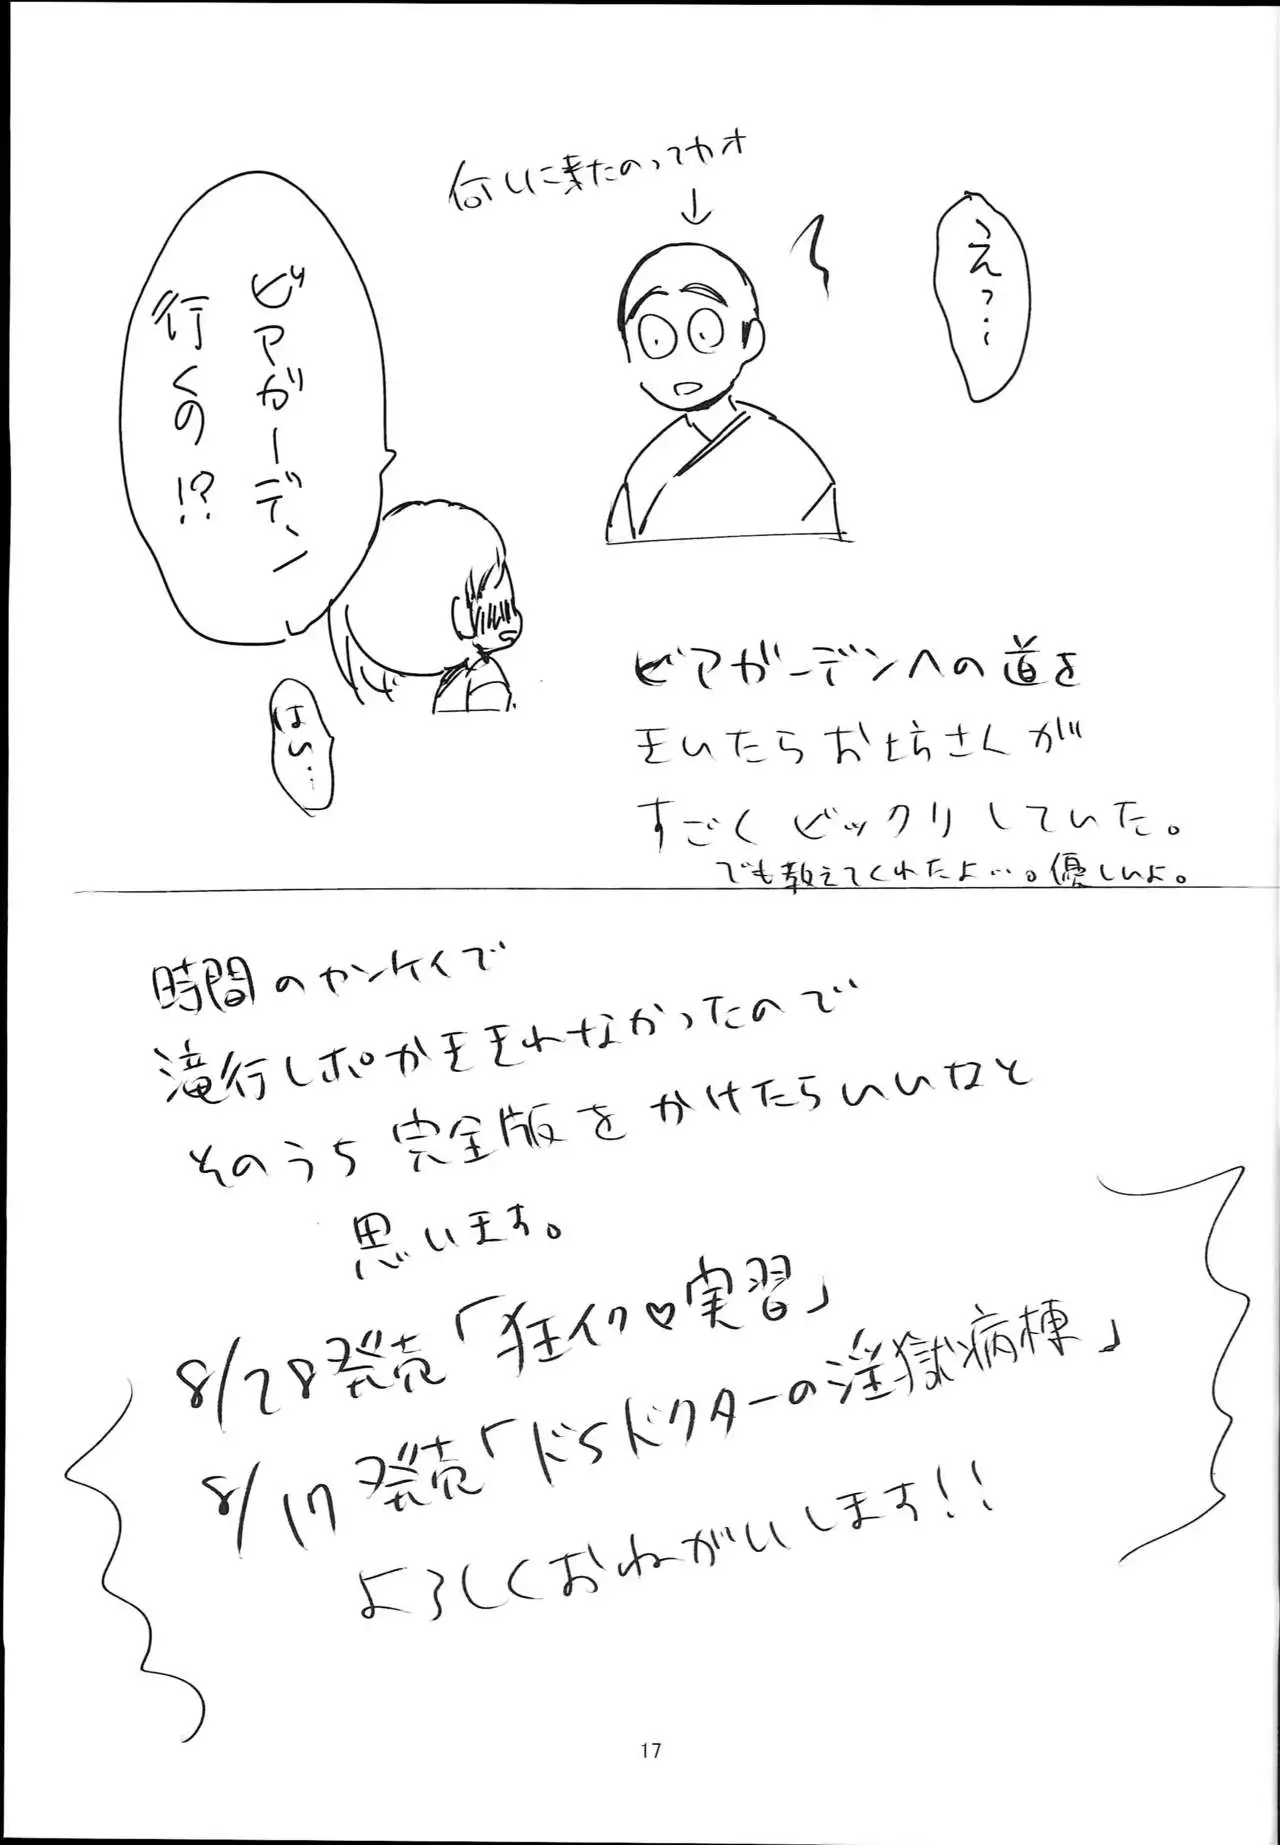 え?…
何しに来たのってカオ
↓
ビアガーデン
行くの!?
はい…
ビアガーデンへの道を
きいたらお坊さんが
すごくビックリしていた。
でも教えてくれたよ…。優しいよ。
時間のカンケイで
滝行レポがまとまれなかったので
そのうち完全版をかけたらいいなと
思います。
8/28発売「狂イク♡実習」
8/17発売「ドSドクターの淫獄病棟」
よろしくおねがいします!!
17